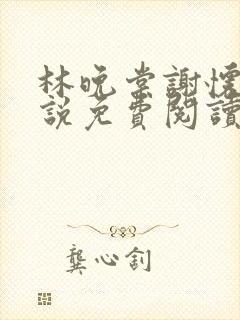 林晚棠謝懷
說免費閱讀
龔心釗